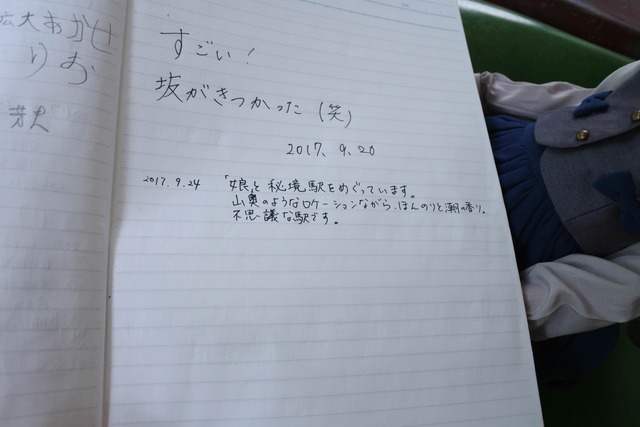 広大 あかせ
りお
すごい!
坂がきつかった(笑)
2017、9、20
2017.9.24 「娘」と秘境駅をめぐっています。
山奥のようなロケーションながら、ほんのりと潮の香り。
不思議な駅です。